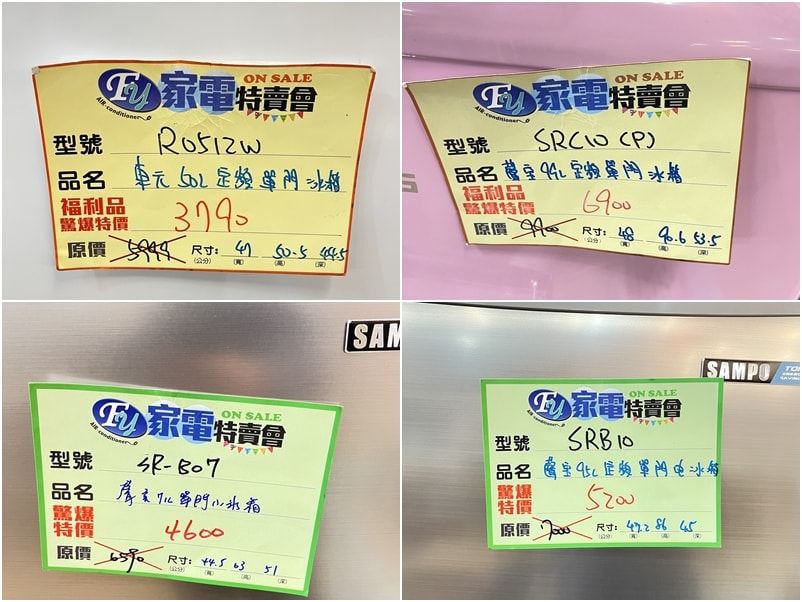 FU 家電特賣會 ON SALE
AIR-conditioner
型號 R0512W
品名 東元 50L 定頻單門冰箱
福利品
驚爆特價 3790
原價 5999 尺寸: 47 50.5 44.5
(公分) (寬) (高) (深)
FU 家電特賣會 ON SALE
AIR-conditioner
型號 SRC10(P)
品名 聲宝 99L 定頻單門冰箱
福利品
驚爆特價 6900
原價 9900 尺寸: 48 90.6 53.5
(公分) (寬) (高) (深)
SAM
FU 家電特賣會 ON SALE
AIR-conditioner
型號 SR-B07
品名 聲宝 71L 單門小冰箱
驚爆
特價 4600
原價 6590 尺寸: 44.5 63 51
(公分) (寬) (高) (深)
SAMPO
FU 家電特賣會 ON SALE
AIR-conditioner
型號 SRB10
品名 聲宝 95L 定頻單門电冰箱
驚爆
特價 5200
原價 7000 尺寸: 47.2 86 45
(公分) (寬) (高) (深)